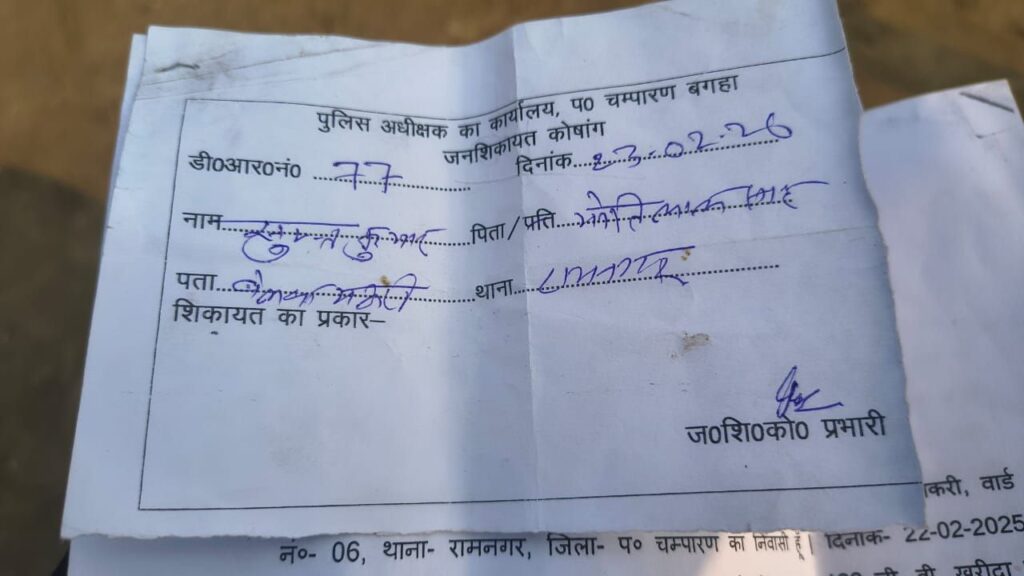 पुलिस अधीक्षक का कार्यालय, प० चम्पारण बगहा
जनशिकायत कोषांग
डी०आर०नं० 77 दिनांक 23-02-26
नाम कुमार पिता/प्रति साह
पता थाना रामनगर
शिकायत का प्रकार–
ज०शि०को० प्रभारी
करी, वार्ड
नं०- 06, थाना- रामनगर, जिला- प० चम्पारण का निवासी हूँ। दिनांक- 22-02-2025
खरीदा